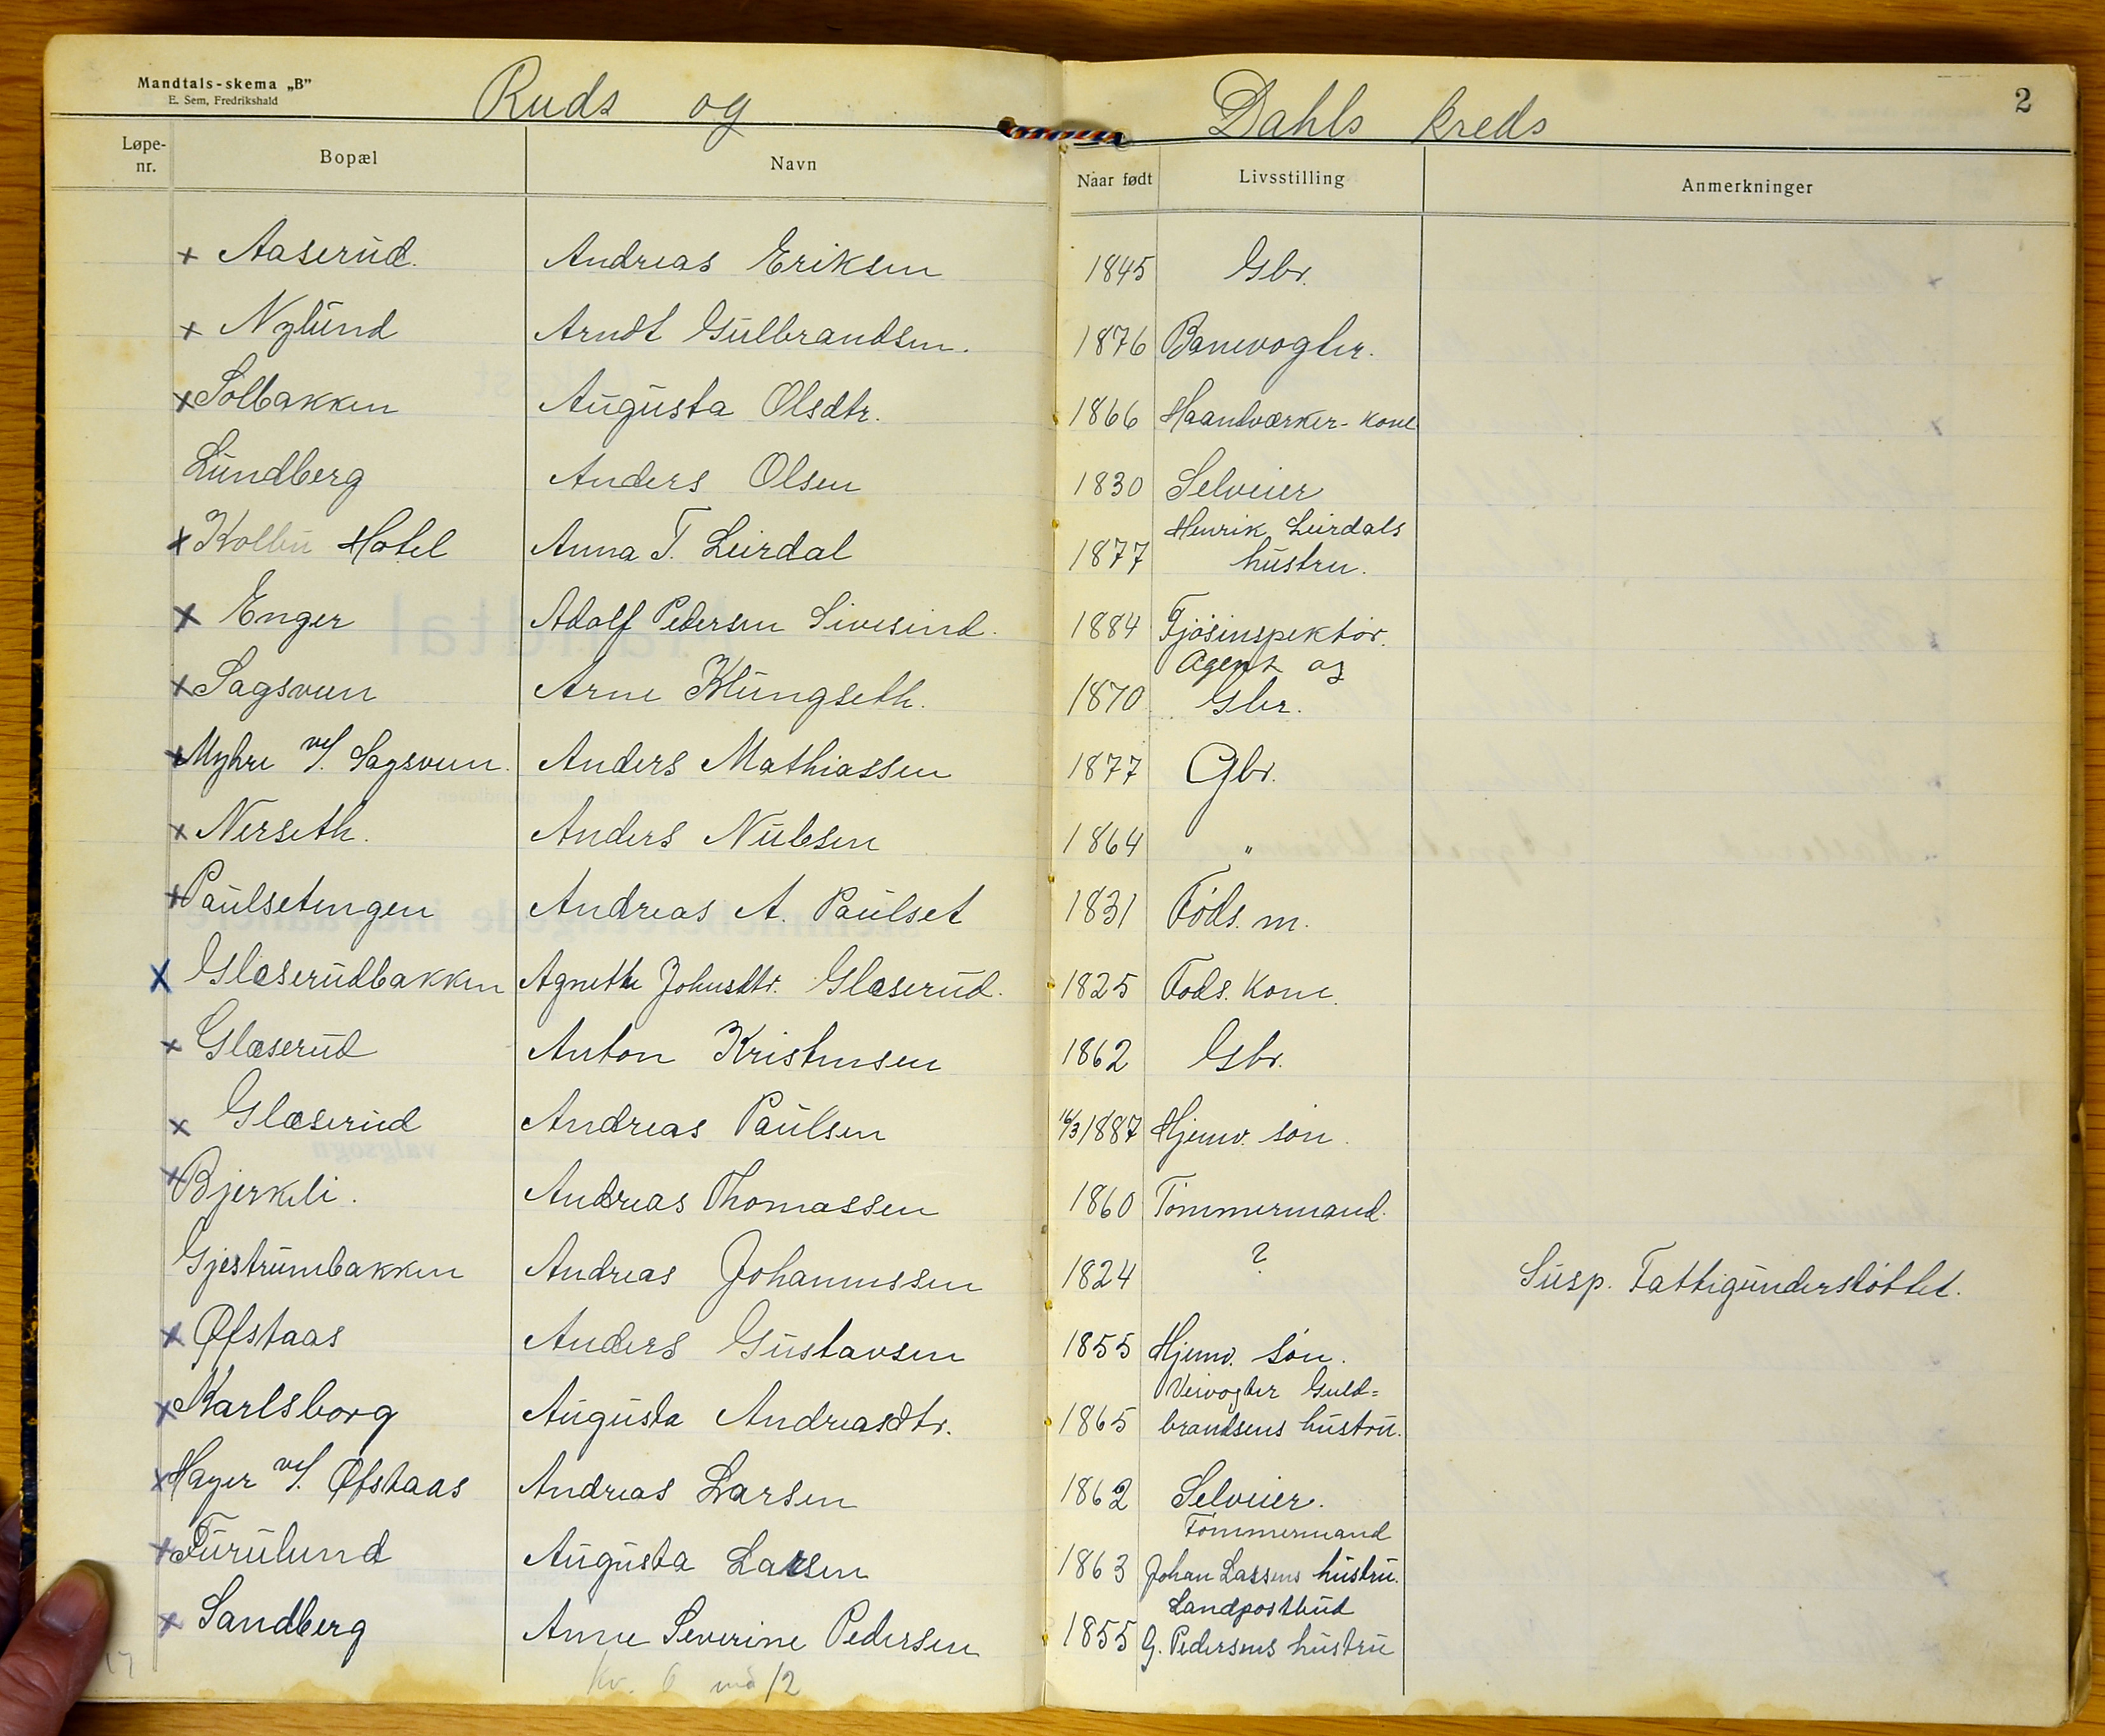 Mandtals-skema „B”
E. Sem, Fredrikshald
Ruds og Dahls kreds
2
Løpe-nr. Bopæl Navn Naar født Livsstilling Anmerkninger
x Aaserud. Andreas Eriksen 1845 Gbr.
x Nylund Arndt Gulbrandsen. 1876 Banevogter.
x Solbakken Augusta Olsdtr. 1866 Haandværker-kone
Lundberg Anders Olsen 1830 Selveier
x Kolbu Hotel Anna T. Leirdal 1877 Henrik Leirdals hustru.
x Enger Adolf Pedersen Sivesind. 1884 Fjøsinspektør.
x Sagsveen Arne Klungseth. 1870 Agent og Gbr.
x Myhre v/S. Sagsveen. Anders Mathiassen 1877 Gbr.
x Nerseth. Anders Nielsen 1864 "
x Paulsetengen Andreas A. Paulset 1831 Føds. m.
x Glæserudbakken Agnethe Johnsdtr. Glæserud. 1825 Føds. kone.
x Glæserud Anton Kristensen 1862 Gbr.
x Glæserud Andreas Paulsen 16/3 1887 Hjemv. søn.
x Bjerkeli. Andreas Thomassen 1860 Tømmermand.
Gjestrumbakken Andreas Johannessen 1824 ? Susp. Fattigunderstøttet.
x Øfstaas Anders Gustavsen 1855 Hjemv. søn.
x Karlsborg Augusta Andreasdtr. 1865 Veivogter Guld=brandsens hustru.
x Hager v/S. Øfstaas Andreas Larsen 1862 Selveier.
x Furulund Augusta Larsen 1863 Tømmermand Johan Larsens hustru.
x Sandberg Anne Severine Pedersen 1855 Landpostbud G. Pedersens hustru
17 Kv. 6 md 12